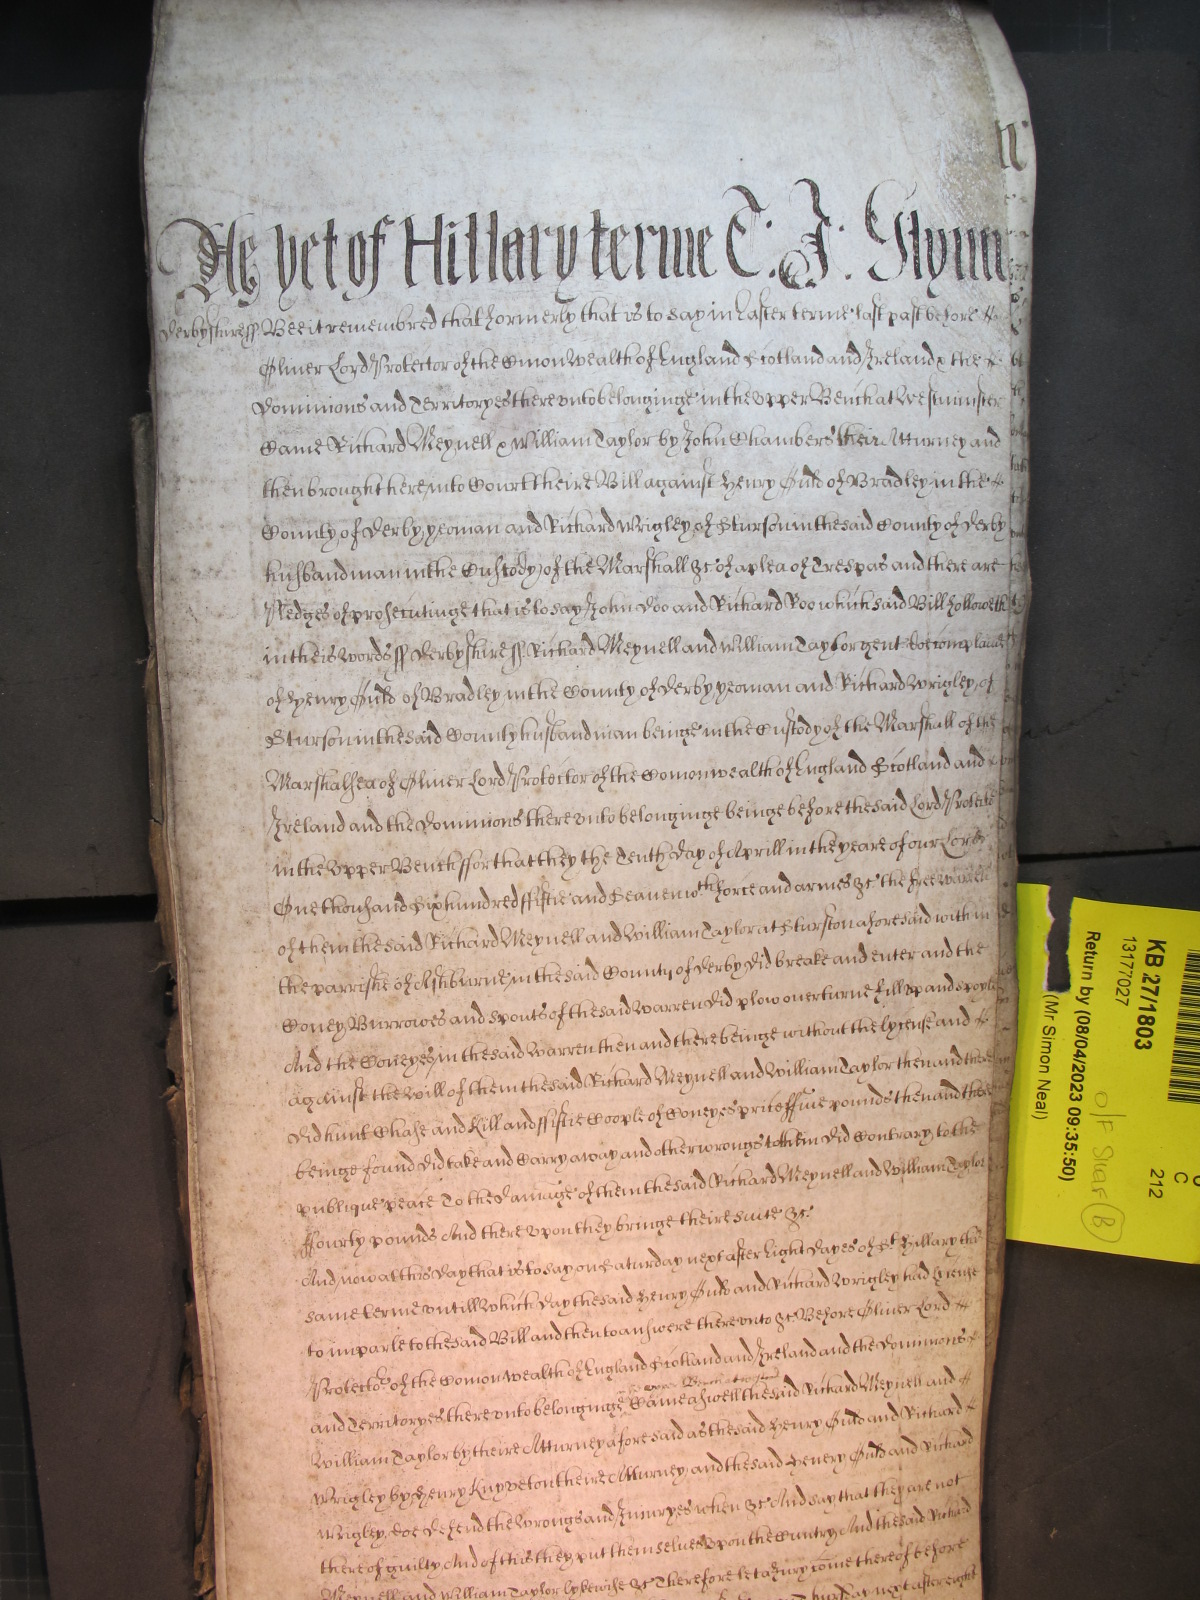 As yet of Hillary terme T: J: Glynn
Derbyshire ss Bee it remembred that formerly that is to say in Easter terme last past before
Oliver Lord Protector of the Comonwealth of England Scotland and Ireland & the
Dominions and Territoryes thereunto belonginge in the Upper Bench at Westminster
Came Richard Meynell & William Taylor by John Chambers their Atturney and
then brought here into Court theire Bill against Henry Ould of Bradley in the
County of Derby yeoman and Richard Wrigley of Sturson in the said County of Derby
husbandman in the Custody of the Marshall &c of a plea of Trespas and there are
Pledges of prosecutinge that is to say John Doo and Richard Roo which said Bill followeth
in theis words ss Derbyshire ss Richard Meynell and William Taylor gent doe complaine
of Henry Ould of Bradley in the County of Derby yeoman and Richard Wrigley of
Sturson in the said County husbandman beinge in the Custody of the Marshall of the
Marshalsea of Oliver Lord Protector of the Comonwealth of England Scotland and
Ireland and the Dominions thereunto belonginge beinge before the said Lord Protector
in the Upper Bench ffor that they the Tenth day of Aprill in the yeare of our Lord
One thousand Six hundred ffiftie and Seaven wth force and armes &c the free warren
of them the said Richard Meynell and William Taylor at Sturston aforesaid within
the parrishe of Ashburne in the said County of Derby did breake and enter and the
Coney Burrowes and spouts of the said warren did plow overturne fill up and spoyle
And the Coneyes in the said Warren then and there beinge without the lycense and
against the will of them the said Richard Meynell and William Taylor then and there
did hunt Chase and Kill and ffiftie Coople of Coneyes price ffive pounds then and there
beinge found did take and Carry away and other wrongs to them did Contrary to the
publique peace To the damage of them the said Richard Meynell and William Taylor
ffourty pounds And thereupon they bringe theire suite &c:
And now at this day that is to say on Saturday next after Eight dayes of St Hillary this
same terme untill which day the said Henry Ould and Richard Wrigley had lycense
to imparle to the said Bill and then to answere thereunto &c Before Oliver Lord
Protector of the Comonwealth of England Scotland and Ireland and the Dominions
and Territoryes thereunto belonginge Came aswell the said Richard Meynell and
William Taylor by theire Atturney aforesaid as the said Henry Ould and Richard
Wrigley by Henry Knyveton theire Atturney and the said Henery Ould and Richard
Wrigley doe defend the wrongs and Iniuryes when &c And say that they are not
thereof guilty And of this they put themselves upon the Cuntry And the said Richard
Meynell and William Taylor lykewise &c Therefore let a Jury come thereof before
Thursday next after eight
KB 27/1803
13177027
Return by (08/04/2023 09:35:50)
(Mr Simon Neal)
C
212
O/F Shelf B